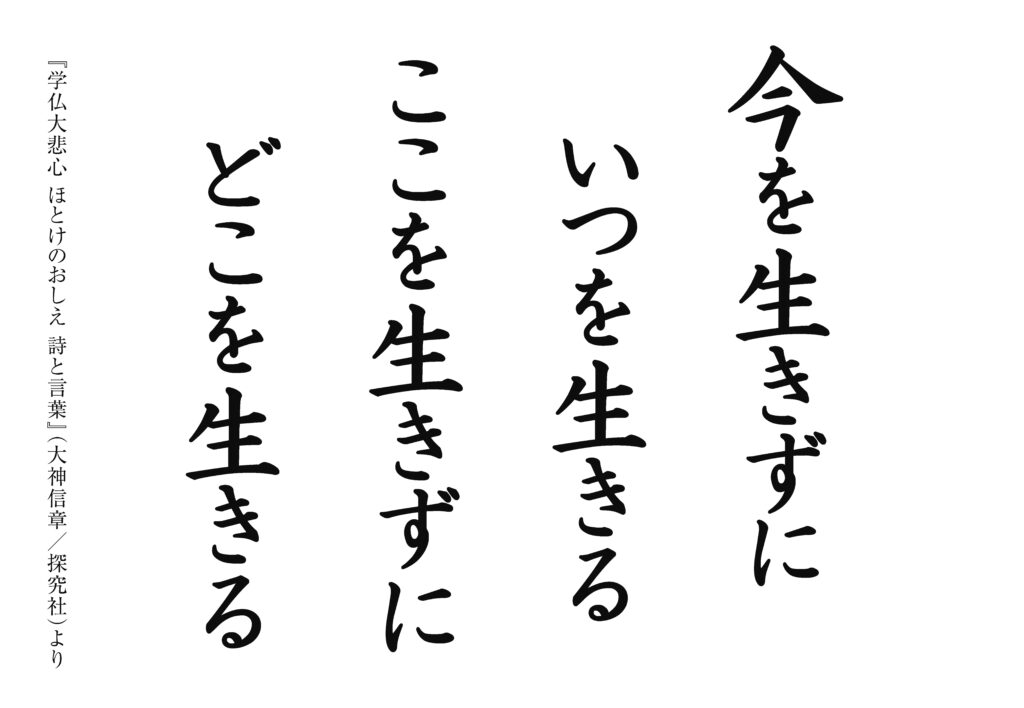 今を生きずに
いつを生きる
ここを生きずに
どこを生きる
『学仏大悲心 ほとけのおしえ 詩と言葉』(大神信章／探究社)より